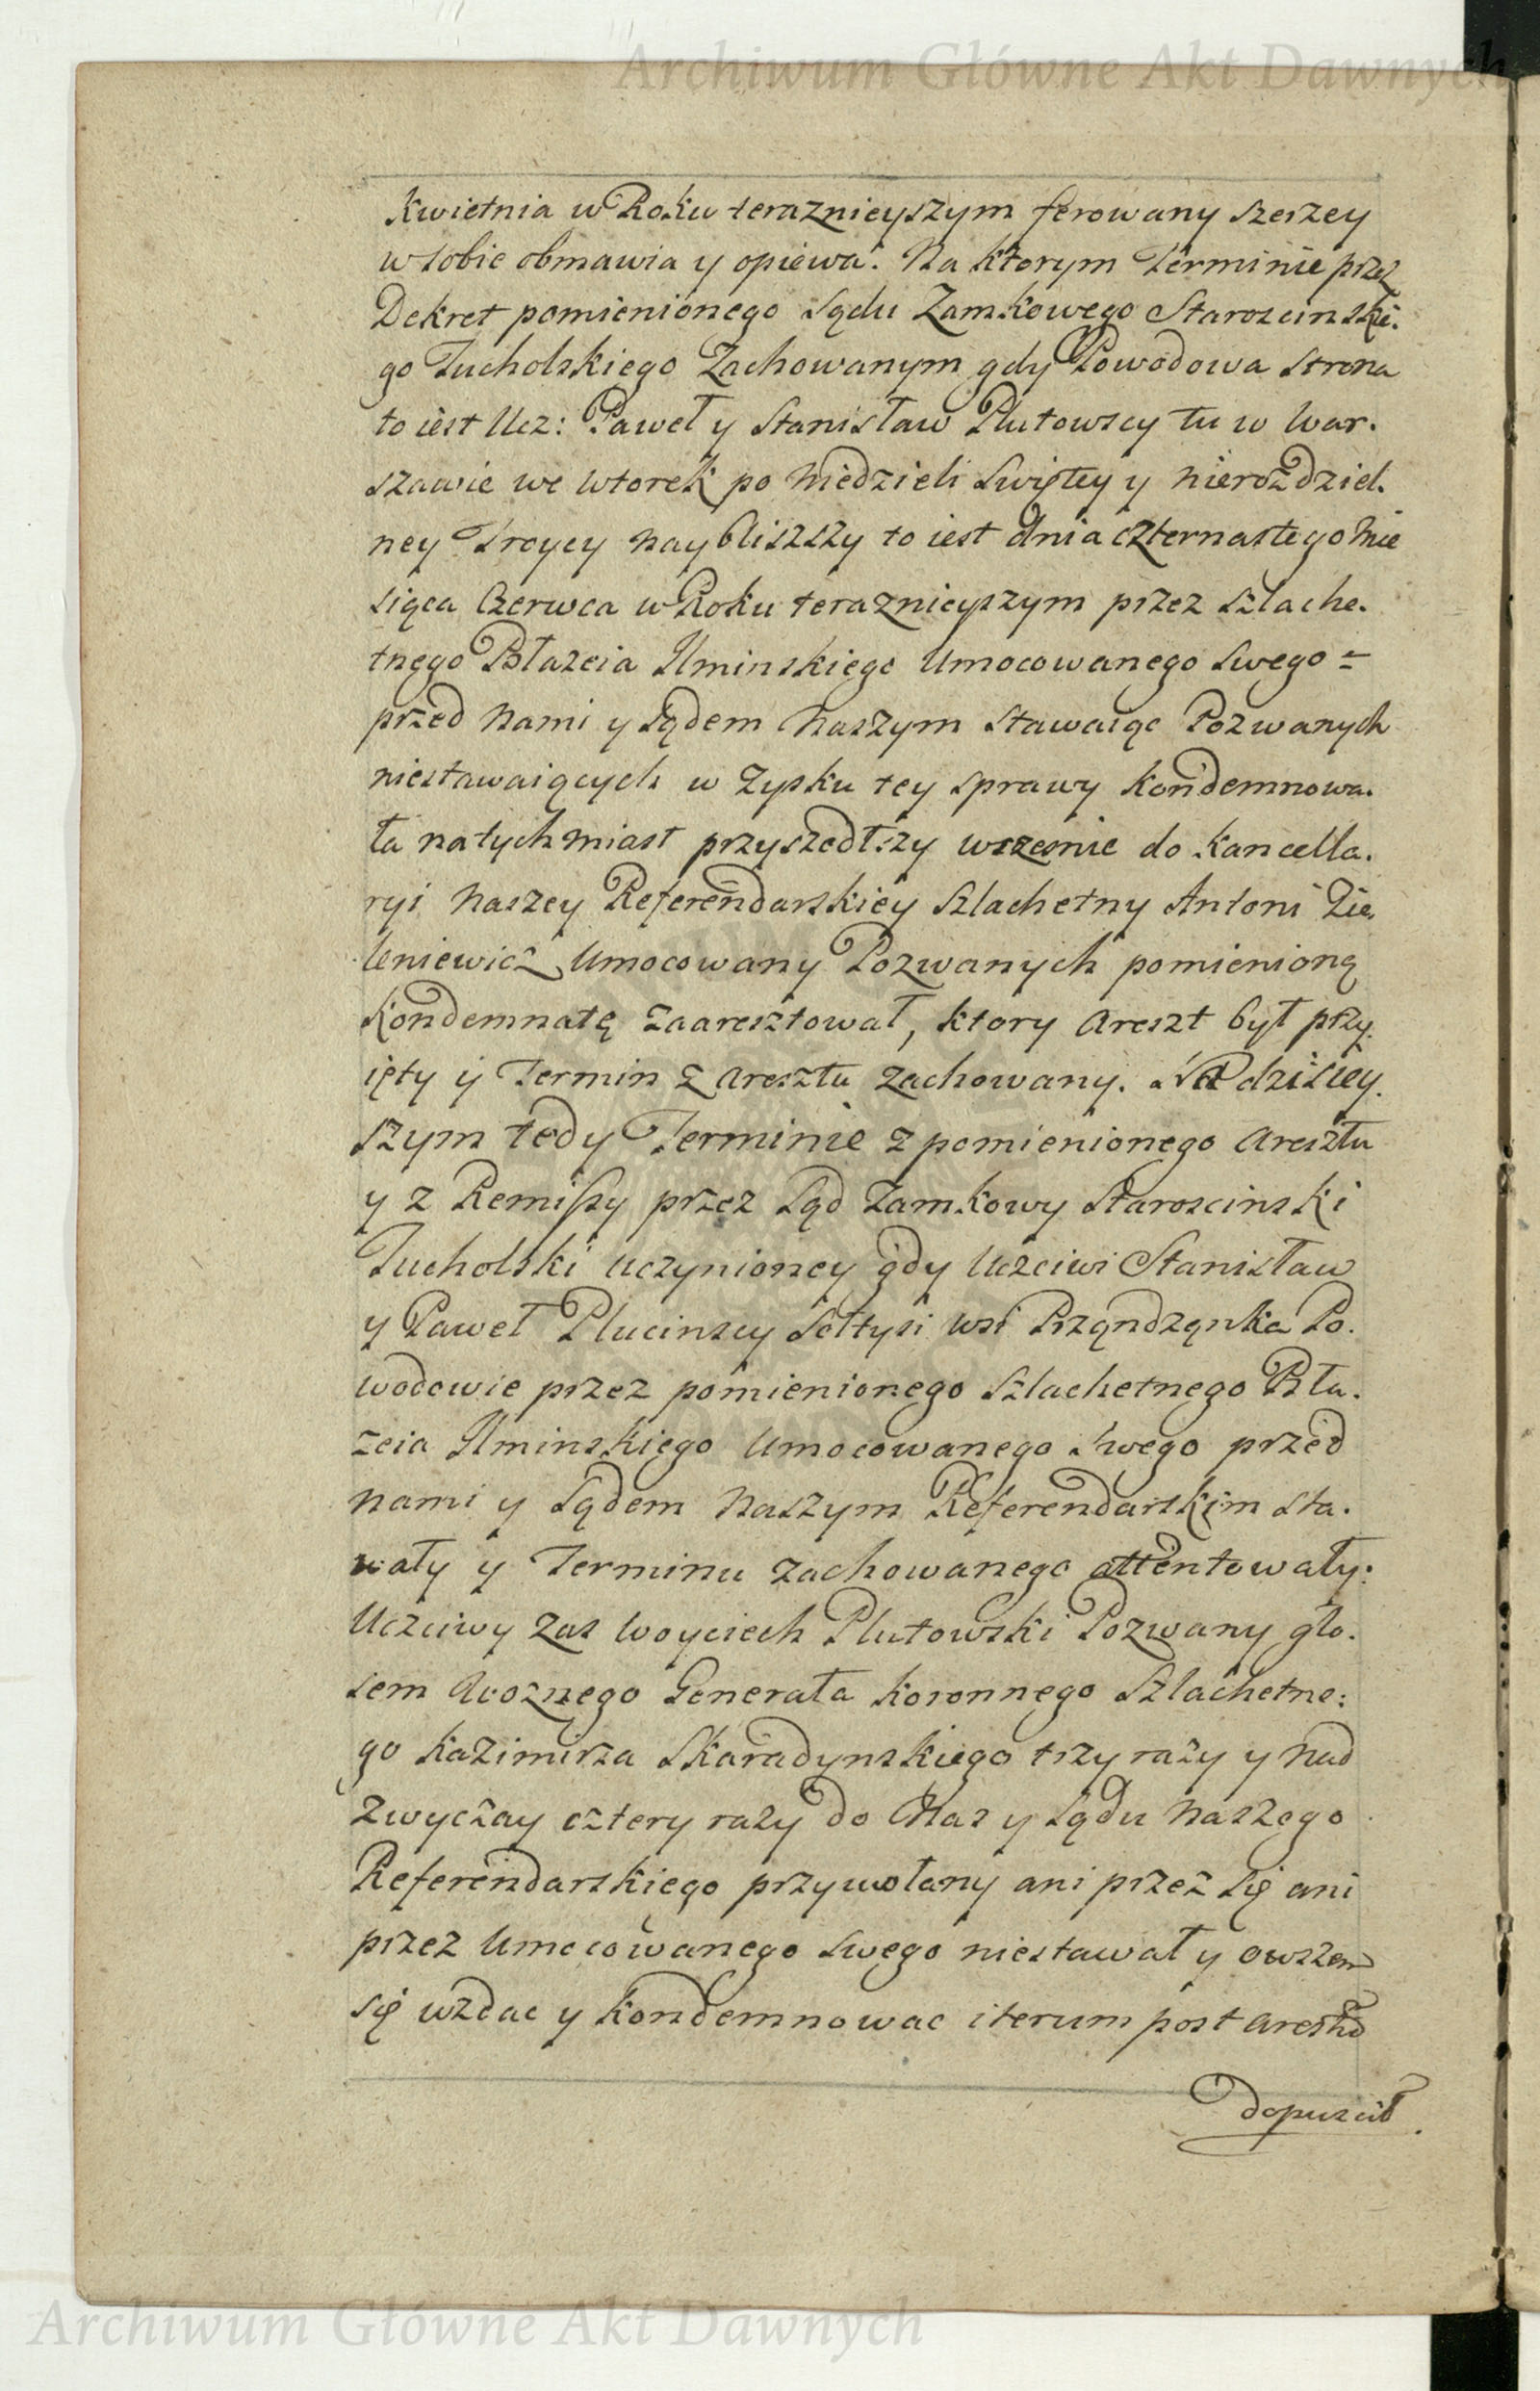 Archiwum Główne Akt Dawnych
Kwietnia w Roku teraznieyszym ferowany szerzey
w sobie obmawia y opiewa. Na ktorym Terminie przez
Dekret pomienionego Sądu Zamkowego Staroscinskie.
go Tucholskiego Zachowanym gdy Powodowa Strona
to iest Ucz: Paweł y Stanisław Plutowscy tu w War.
szawie we Wtorek po Niedzieli Swiętey y Nierozdziel.
ney Troycy naybliszszy to iest dnia czternastego Mie
siąca Czerwca w Roku teraznieyszym przez Szlache.
tnego Błazeia Ilminskiego Umocowanego Swego =
przed Nami y Sądem Naszym Stawaiąc Pozwanych
niestawaiących w Zysku tey sprawy Kondemnowa.
ła natychmiast przyszedłszy wczesnie do Kancella.
ryi Naszey Referendarskiey Szlachetny Antoni Zie.
leniewicz Umocowany Pozwanych pomienioną
Kondemnatę zaaresztował, ktory Areszt był przy.
ięty y Termin z Aresztu zachowany. Na dzisiey.
szym tedy Terminie z pomienionego Aresztu
y z Remissy przez Sąd Zamkowy Staroscinski
Tucholski uczynioney gdy Uczciwi Stanisław
y Paweł Plucinscy Sołtysi wsi Prządządka Po.
wodowie przez pomienionego Szlachetnego Bła.
zeia Ilminskiego Umocowanego Swego przed
nami y Sądem Naszym Referendarskim sta.
wały y Terminu zachowanego attentowały:
Uczciwy Zas Woyciech Plutowski Pozwany gło.
sem Woznego Generała Koronnego Szlachetne:
go Kazimirza Skaradynskiego trzy razy y nad
zwyczay cztery razy do Nas y Sądu Naszego
Referendarskiego przywołany ani przez się ani
przez Umocowanego Swego niestawał y owszem
się wzdac y Kondemnowac iterum post Arestũ
dopuscił
Archiwum Główne Akt Dawnych